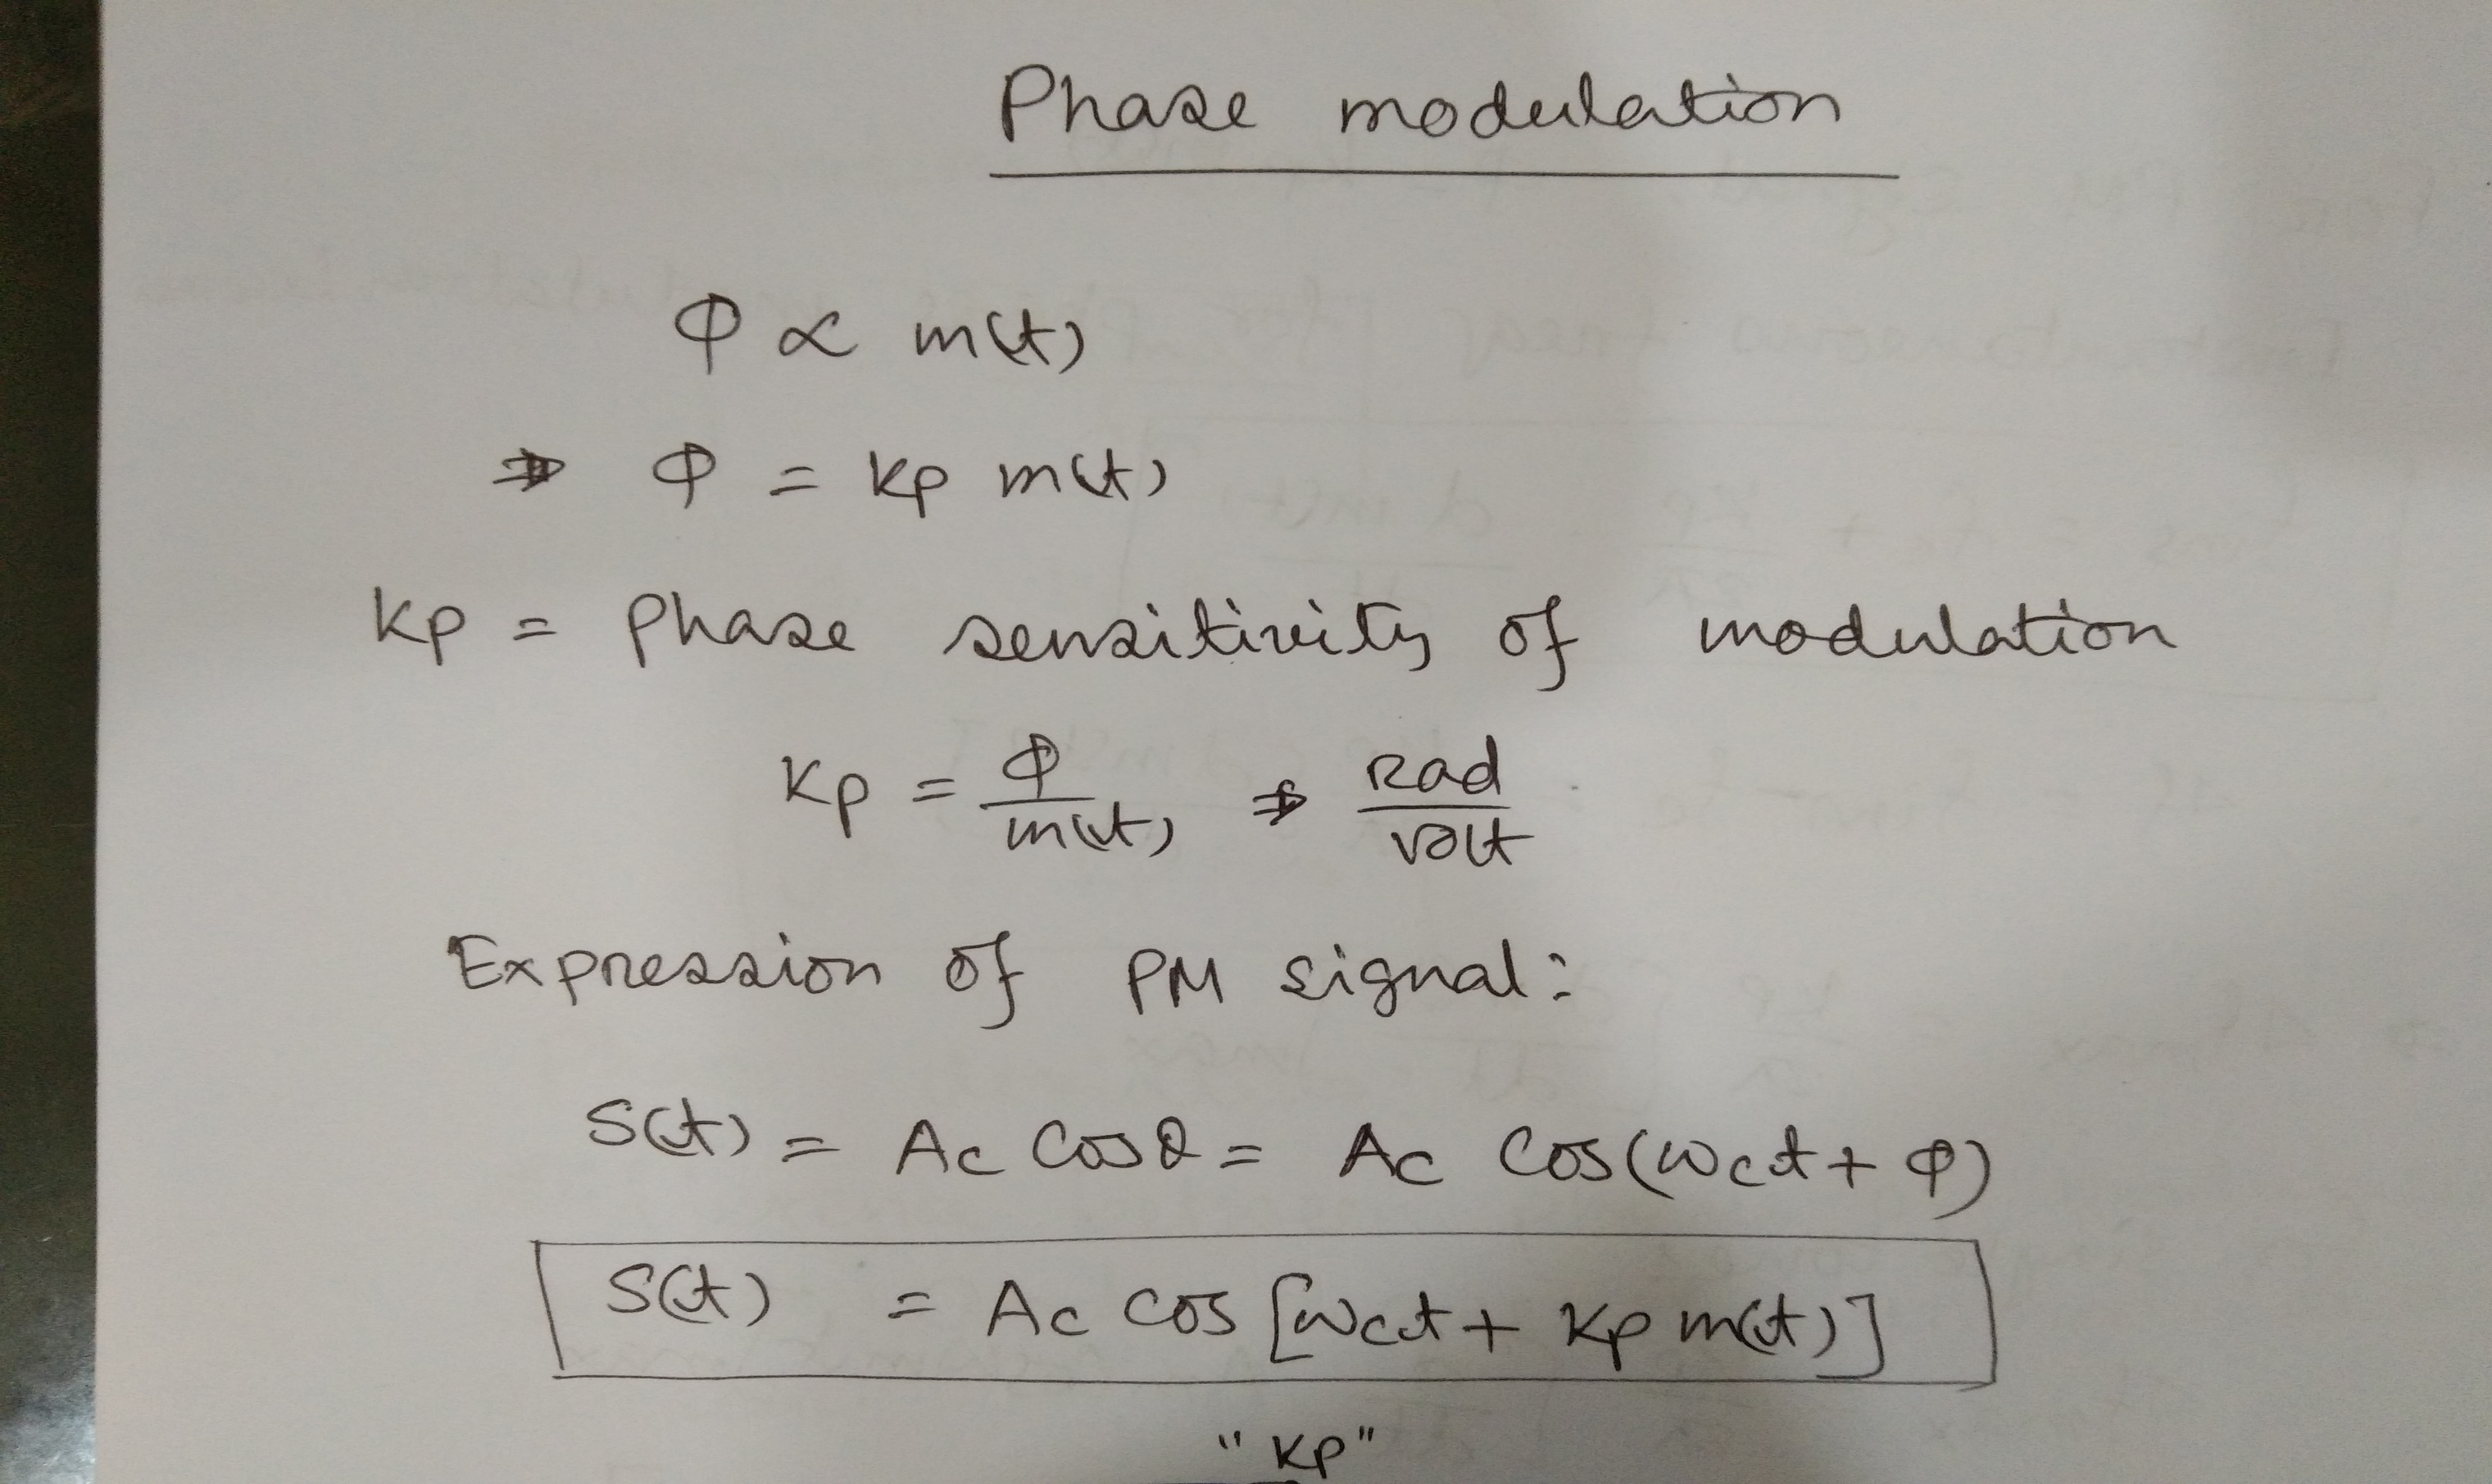 Phase modulation
Φ ∝ m(t)
⇒ Φ = Kp m(t)
Kp = Phase sensitivity of modulation
Kp = Φ/m(t) ⇒ Rad/volt
Expression of PM signal:
S(t) = Ac Cosθ = Ac Cos(ωct + Φ)
S(t) = Ac Cos [ωct + Kp m(t)]
"Kp"